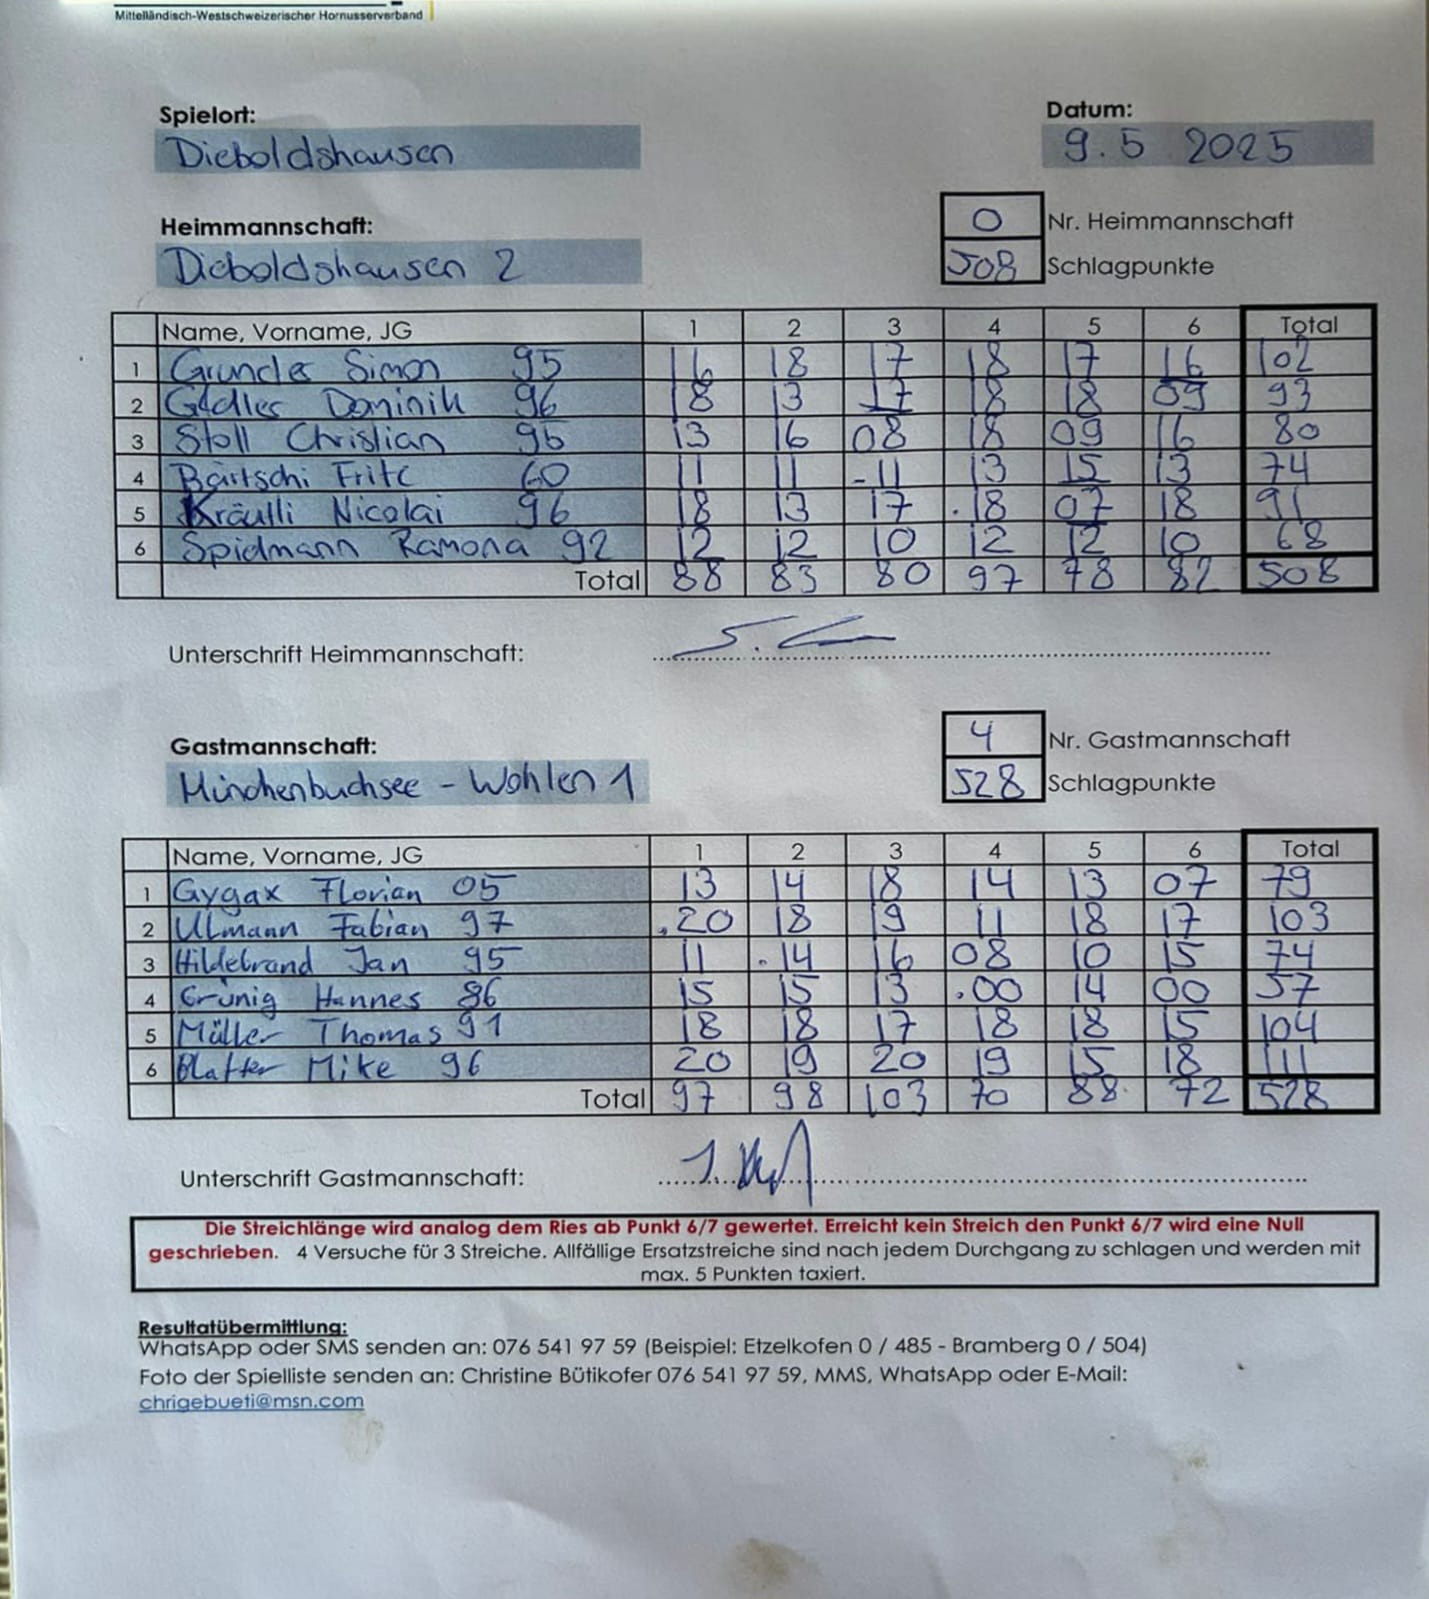 Mittelländisch-Westschweizerischer Hornusserverband
Spielort: Datum:
Dieboldshausen 9.5 2025
Heimmannschaft: 0 Nr. Heimmannschaft
Dieboldshausen 2 508 Schlagpunkte
Name, Vorname, JG 1 2 3 4 5 6 Total
1 Simon 95 16 18 17 18 17 16 102
2 Dominik 96 18 13 17 18 18 09 93
3 Stoll Christian 13 16 08 18 09 16 80
4 Bärtschi 60 11 11 11 13 15 13 74
5 Nicolai 96 18 13 17 18 07 18 91
6 Ramona 92 12 12 10 12 12 10 68
Total 88 83 80 97 78 82 508
Unterschrift Heimmannschaft:
Gastmannschaft: 4 Nr. Gastmannschaft
Münchenbuchsee - Wohlen 1 528 Schlagpunkte
Name, Vorname, JG 1 2 3 4 5 6 Total
1 Gygax Florian 05 13 14 18 14 13 07 79
2 Ulmann Fabian 97 .20 18 19 11 18 17 103
3 Hildebrand Jan 95 11 .14 16 08 10 15 74
4 Grünig Hannes 15 15 13 .00 14 00 57
5 Müller Thomas 91 18 18 17 18 18 15 104
6 Blatter Mike 96 20 19 20 19 15 18 111
Total 97 98 103 70 88 72 528
Unterschrift Gastmannschaft:
Die Streichlänge wird analog dem Ries ab Punkt 6/7 gewertet. Erreicht kein Streich den Punkt 6/7 wird eine Null
geschrieben. 4 Versuche für 3 Streiche. Allfällige Ersatzstreiche sind nach jedem Durchgang zu schlagen und werden mit
max. 5 Punkten taxiert.
Resultatübermittlung:
WhatsApp oder SMS senden an: 076 541 97 59 (Beispiel: Etzelkofen 0 / 485 - Bramberg 0 / 504)
Foto der Spielliste senden an: Christine Bütikofer 076 541 97 59, MMS, WhatsApp oder E-Mail:
chrigebueti@msn.com